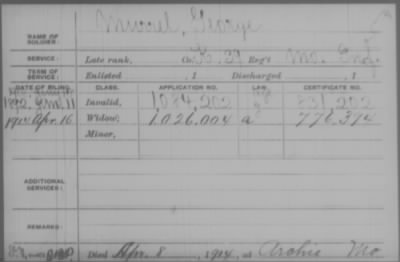 NAME OF SOLDIER: Murrel, George
SERVICE: Late rank, Co. K. 39 Reg't Mo. Enf.
TERM OF SERVICE: Enlisted , 1 Discharged , 1
DATE OF FILING. CLASS. APPLICATION NO. LAW. CERTIFICATE NO.
1892 11 Invalid, 1,084,202 831,202
1914 Apr. 16 Widow, 1,026,004 a 776,374
Minor,
ADDITIONAL SERVICES:
REMARKS:
Died Apr. 8, 1914, at Archie Mo